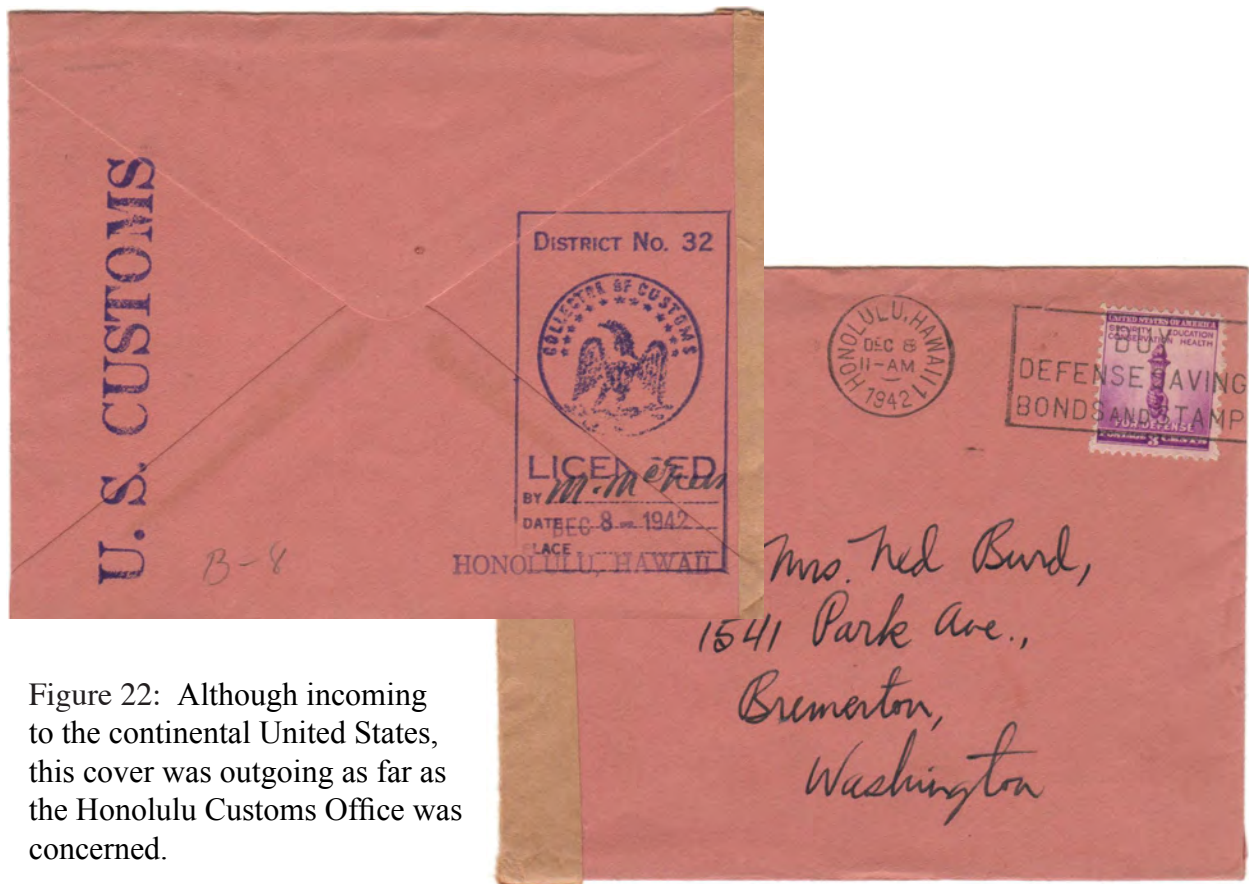 U. S. CUSTOMS
DISTRICT No. 32
COLLECTOR OF CUSTOMS
LICENSED
BY
DATE DEC 8 - 1942
PLACE
HONOLULU, HAWAII
B-8
HONOLULU, HAWAII 1
DEC 8
11-AM
1942
BUY
DEFENSE SAVING
BONDS AND STAMP
UNITED STATES OF AMERICA
SECURITY EDUCATION
CONSERVATION HEALTH
FOR DEFENSE
POSTAGE 3 CENTS
Mrs. Ned Burd,
1541 Park Ave.,
Bremerton,
Washington
Figure 22: Although incoming
to the continental United States,
this cover was outgoing as far as
the Honolulu Customs Office was
concerned.